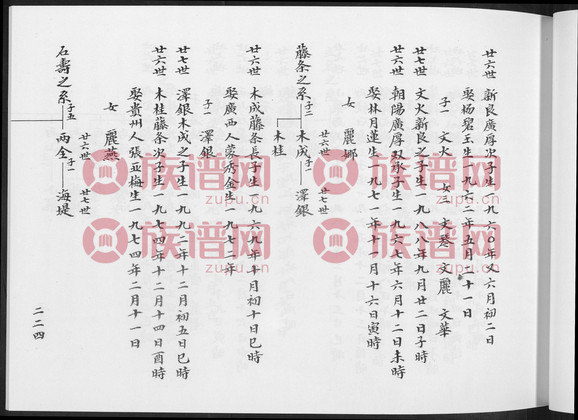 廿六世 新良廣厚次子生一九六〇年又六月初二日
娶杨碧玉生一九七二年五月二十一日
子一 文火 女三 文琴 文麗 文華
廿七世 文火新良之子生一九八八年九月廿二日子時
廿六世 朝陽廣厚双承子生一九六七年六月十二日未時
娶林月蓮生一九七一年十一月十六日寅時
女 麗娜
廿六世 廿七世
藤条之系 子二 木成 子一 澤銀
木桂
廿六世 木成藤条長子生一九六九年十月初十日巳時
娶廣西人蒙秀金生一九七二年
子一 澤銀
廿七世 澤銀木成之子生一九九二年十二月初五日巳時
廿六世 木桂藤条次子生一九七四年十二月十四日酉時
娶貴州人張亚梅生一九七四年二月十一日
女 麗燕
廿六世 廿七世
石壽之系 子五 兩全 子一 海堤
二二四
族谱网
zupu.cn
族谱网
zupu.cn
族谱网
zupu.cn
族谱网
zupu.cn
族谱网
zupu.cn
族谱网
zupu.cn